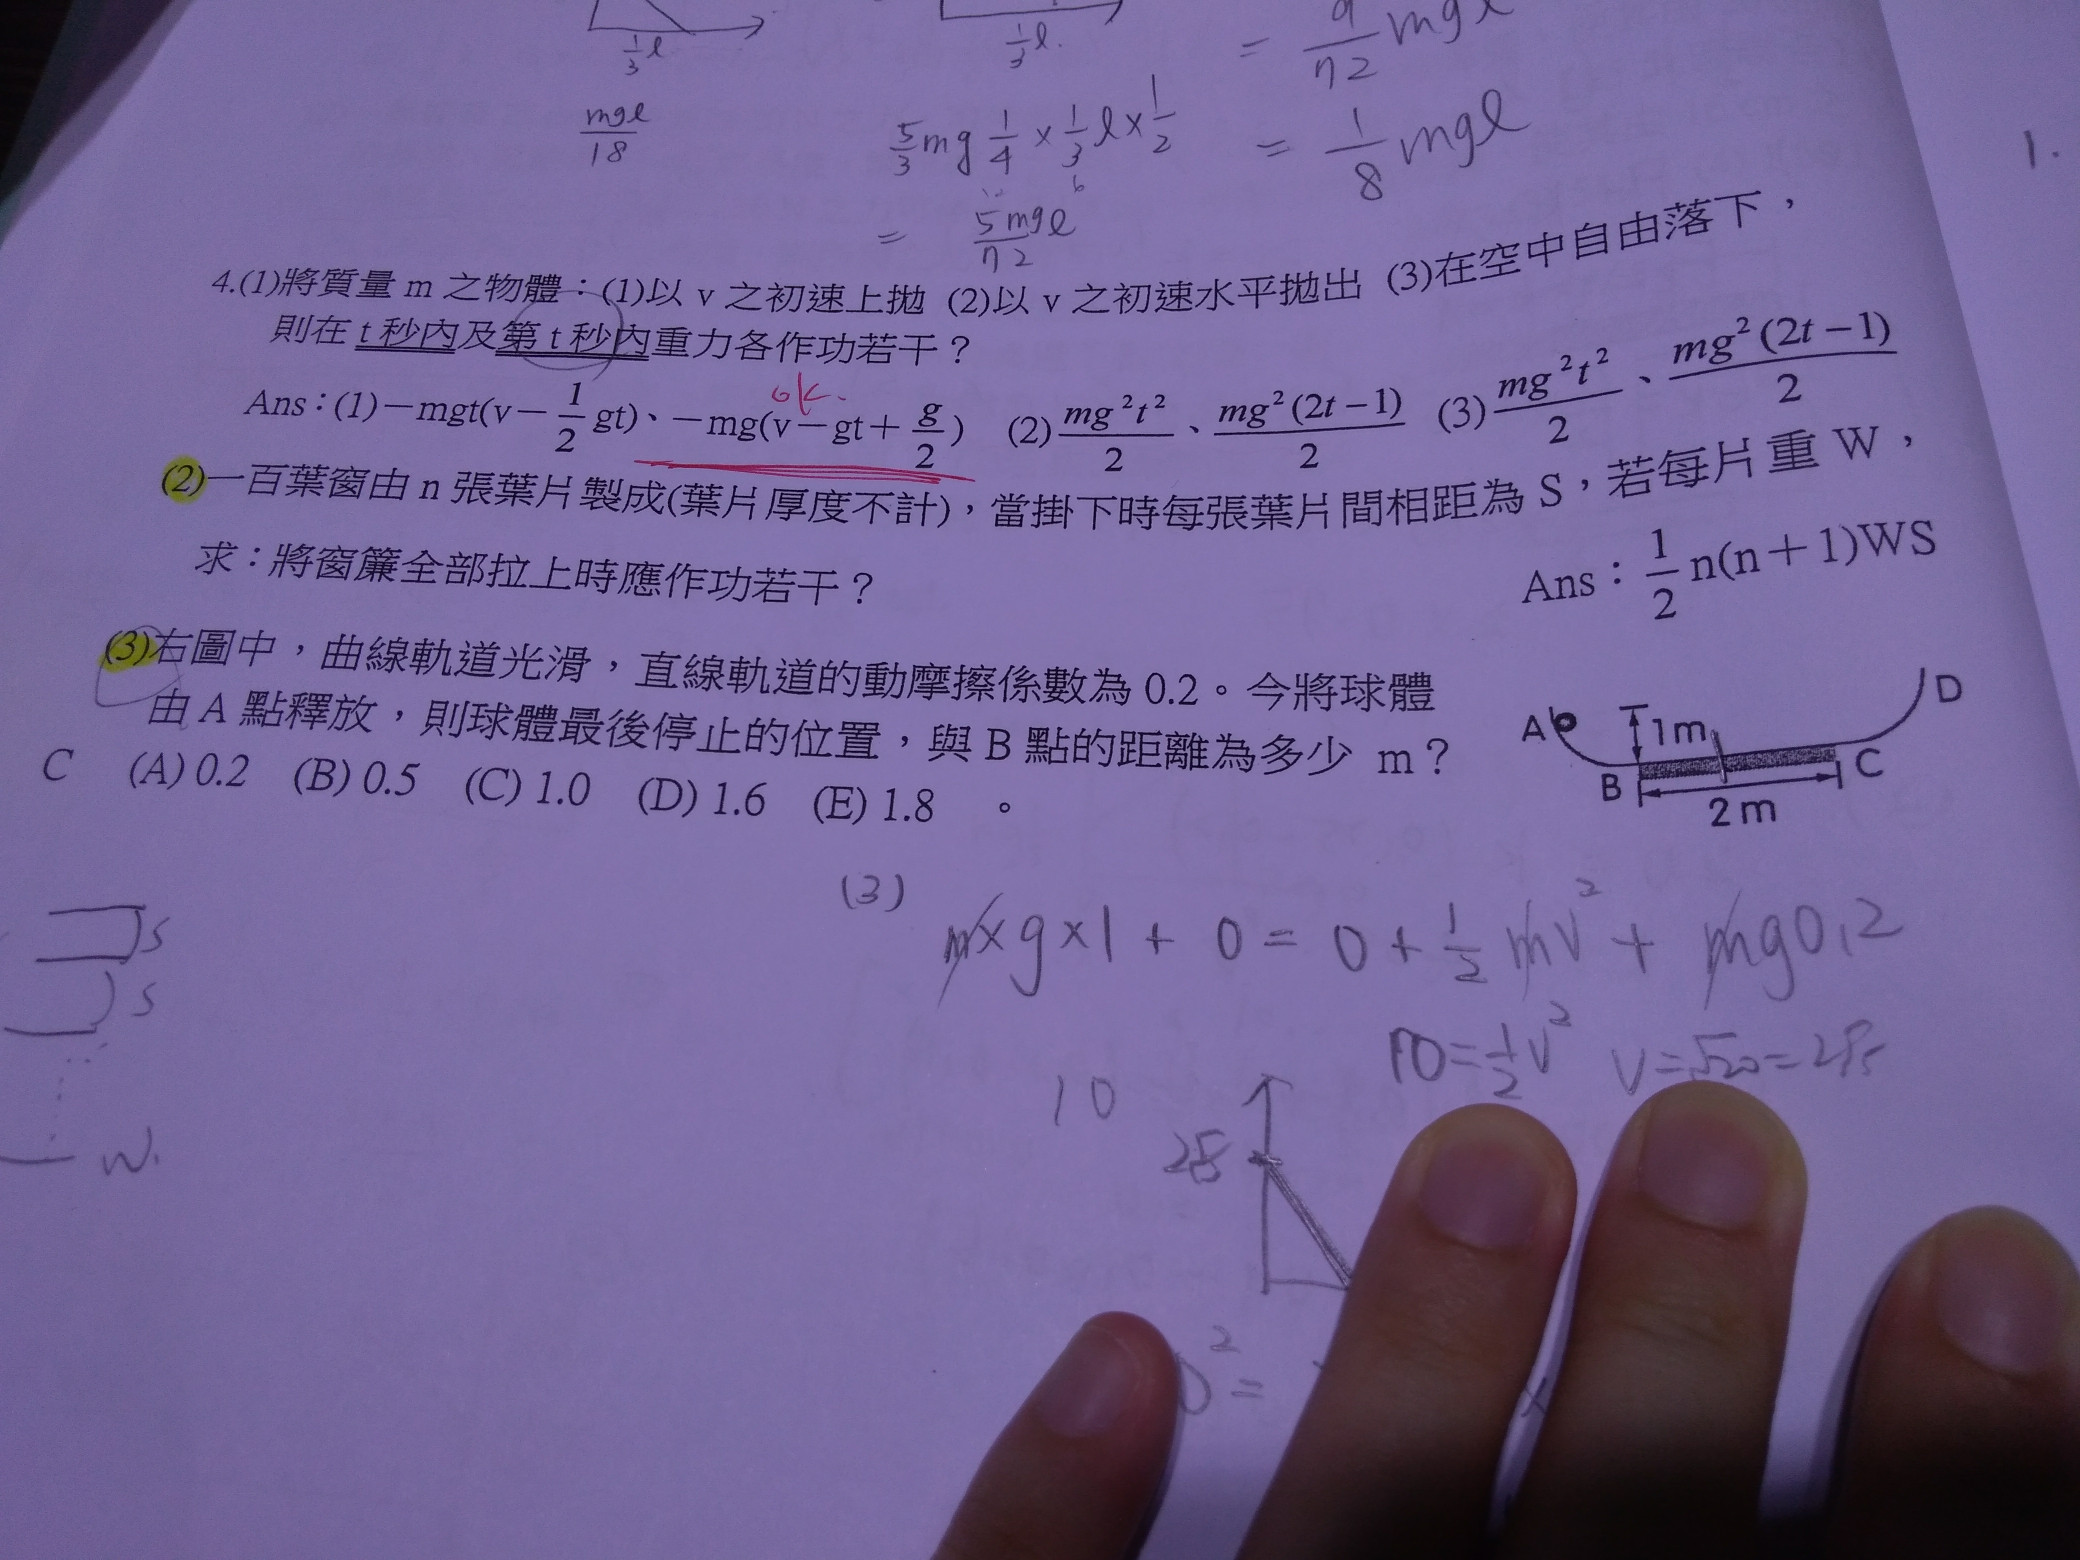 1/3 ℓ
1/3 ℓ.
mgℓ/18
5/3 mg 1/4 × 1/3 ℓ × 1/2
= 9/72 mgℓ
= 1/8 mgℓ
= 5mgℓ/72
1.
4.(1)將質量 m 之物體：(1)以 v 之初速上拋 (2)以 v 之初速水平拋出 (3)在空中自由落下，
則在 t 秒內及第 t 秒內重力各作功若干？
ok.
Ans：(1)－mgt(v－1/2 gt)、－mg(v－gt＋g/2) (2) mg²t²/2、mg²(2t－1)/2 (3) mg²t²/2、mg²(2t－1)/2
(2)一百葉窗由 n 張葉片製成(葉片厚度不計)，當掛下時每張葉片間相距為 S，若每片重 W，
求：將窗簾全部拉上時應作功若干？
Ans：1/2 n(n＋1)WS
(3)右圖中，曲線軌道光滑，直線軌道的動摩擦係數為 0.2。今將球體
由 A 點釋放，則球體最後停止的位置，與 B 點的距離為多少 m？
C (A) 0.2 (B) 0.5 (C) 1.0 (D) 1.6 (E) 1.8 。
A 1m D
B C
2m
S
S
W.
(3)
m×g×1 + 0 = 0 + 1/2 mv² + mg0.2
10 = 1/2 v² v = √20 = 2√5
10
2√5
0² =